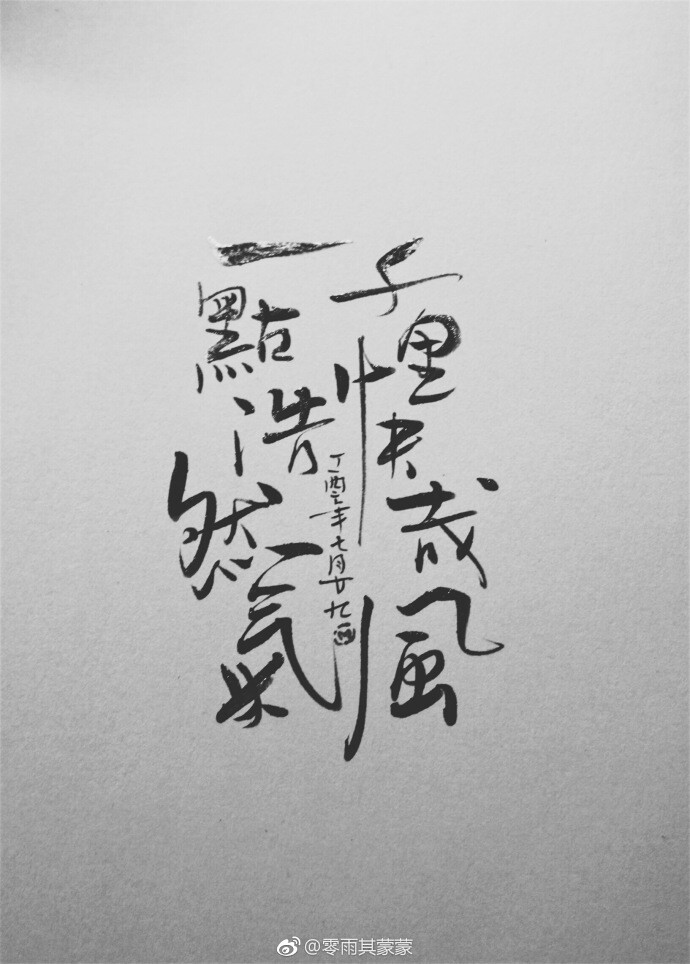 一點浩然氣
千里快哉風
丁酉年七月廿九
@零雨其蒙蒙